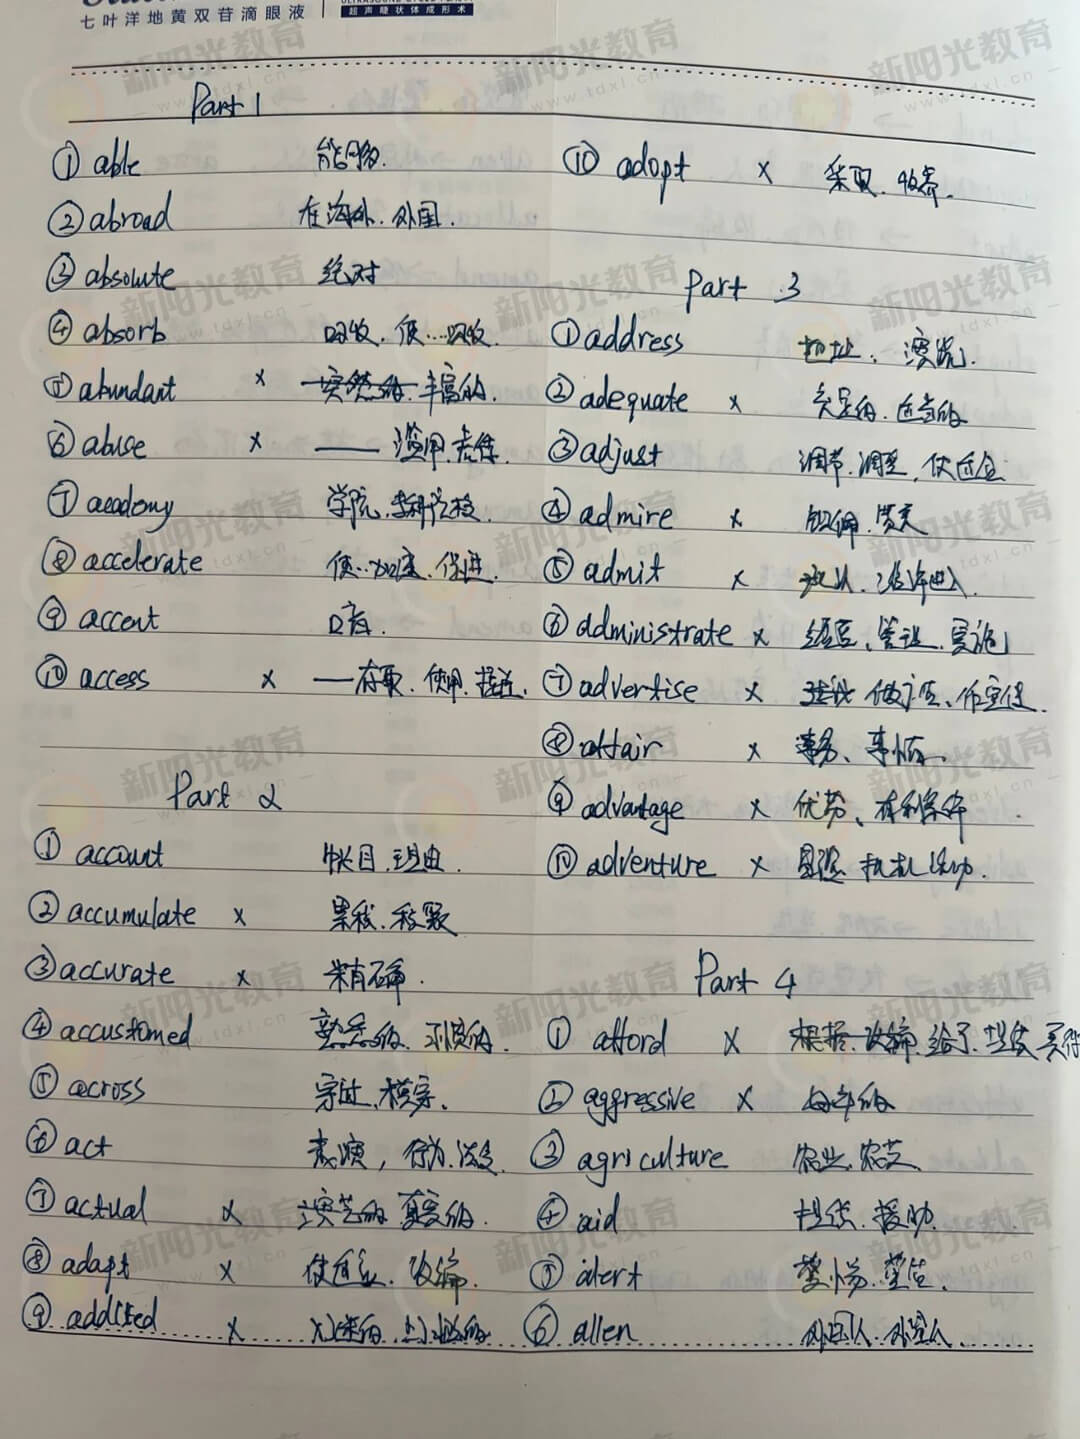 七叶洋地黄双苷滴眼液
超声睫状体成形术
Part 1
① able 能够.
② abroad 在海外. 外国.
③ absolute 绝对
④ absorb 吸收. 使…吸收.
⑤ abundant × 突然的. 丰富的.
⑥ abuse × 滥用. 虐待.
⑦ academy 学院.
⑧ accelerate 使…加速. 促进.
⑨ accent 口音.
⑩ access × 存取. 使用.
Part 2
① account 帐目. 理由.
② accumulate × 累积. 积聚
③ accurate × 精确.
④ accustomed 熟悉的. 习惯的.
⑤ across 穿过. 横穿.
⑥ act 表演, 行为.
⑦ actual ×
⑧ adapt × 使适应. 改编.
⑨ addicted ×
⑩ adopt × 采取. 收养.
Part 3
① address 地址.
② adequate × 充足的. 适当的
③ adjust 调节. 调整. 使适合
④ admire × 钦佩. 赞美
⑤ admit × 承认. 准许进入.
⑥ administrate × 管理. 实施
⑦ advertise × 做广告.
⑧ affair × 事务、事情.
⑨ advantage × 优势、有利条件
⑩ adventure × 冒险
Part 4
① afford × 根据. 改编. 给予. 提供
② aggressive ×
③ agriculture 农业. 农艺.
④ aid 提供. 援助.
⑤ alert 警惕. 警告.
⑥ alien 外国人. 外星人.
新阳光教育
www.tdxl.cn